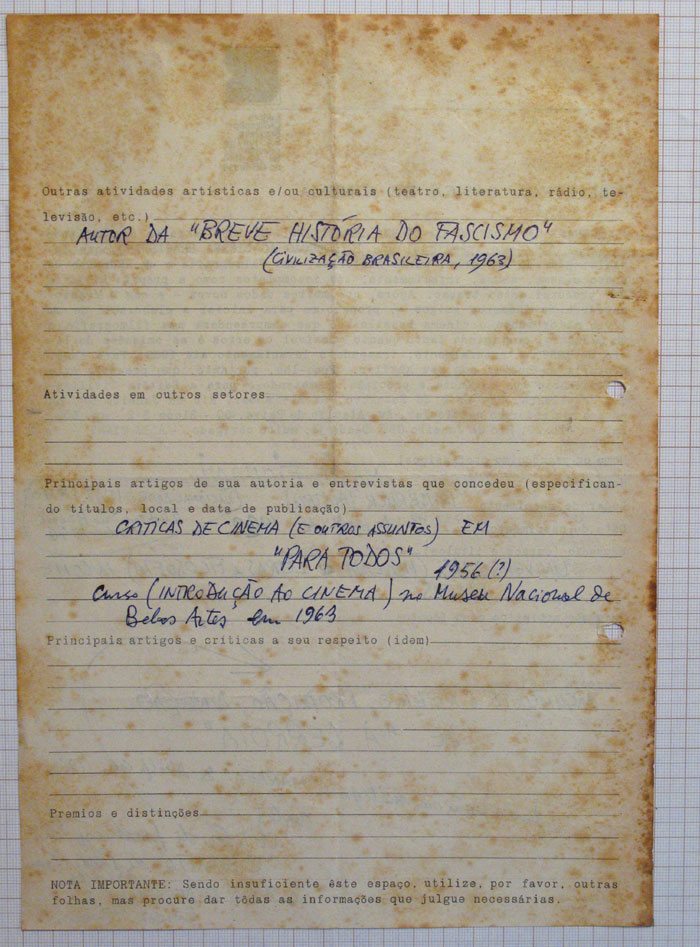 Outras atividades artísticas e/ou culturais (teatro, literatura, rádio, te-
levisão, etc.)
AUTOR DA "BREVE HISTÓRIA DO FASCISMO"
(CIVILIZAÇÃO BRASILEIRA, 1963)
Atividades em outros setores
Principais artigos de sua autoria e entrevistas que concedeu (especifican-
do títulos, local e data de publicação)
CRITICAS DE CINEMA (E OUTROS ASSUNTOS) EM
"PARA TODOS"
1956 (?)
Curso (INTRODUÇÃO AO CINEMA) no Museu Nacional de
Belas Artes, em 1963
Principais artigos e críticas a seu respeito (idem)
Premios e distinções
NOTA IMPORTANTE: Sendo insuficiente êste espaço, utilize, por favor, outras
folhas, mas procure dar tôdas as informações que julgue necessárias.